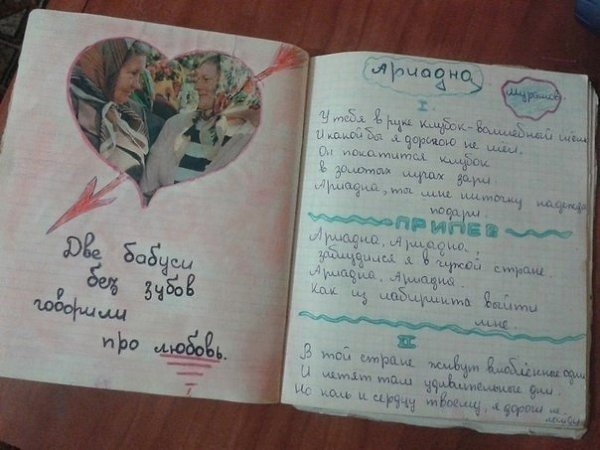 Две бабуси
без зубов
говорили
про любовь.
Ариадна
Муромов.
I.
У тебя в руке клубок-волшебный шёлк
И какой бы я дорогою не шёл.
Он покатится клубок
в золотых играх зари.
Ариадна, ты мне ниточку надежды
подари.
ПРИПЕВ
Ариадна, Ариадна,
заблудился я в чужой стране.
Ариадна, Ариадна.
Как из лабиринта выйти
мне.
II
В той стране живут влюблённые одни
И летят там удивительные дни.
Но коль к сердцу твоему, я дороги не
найду